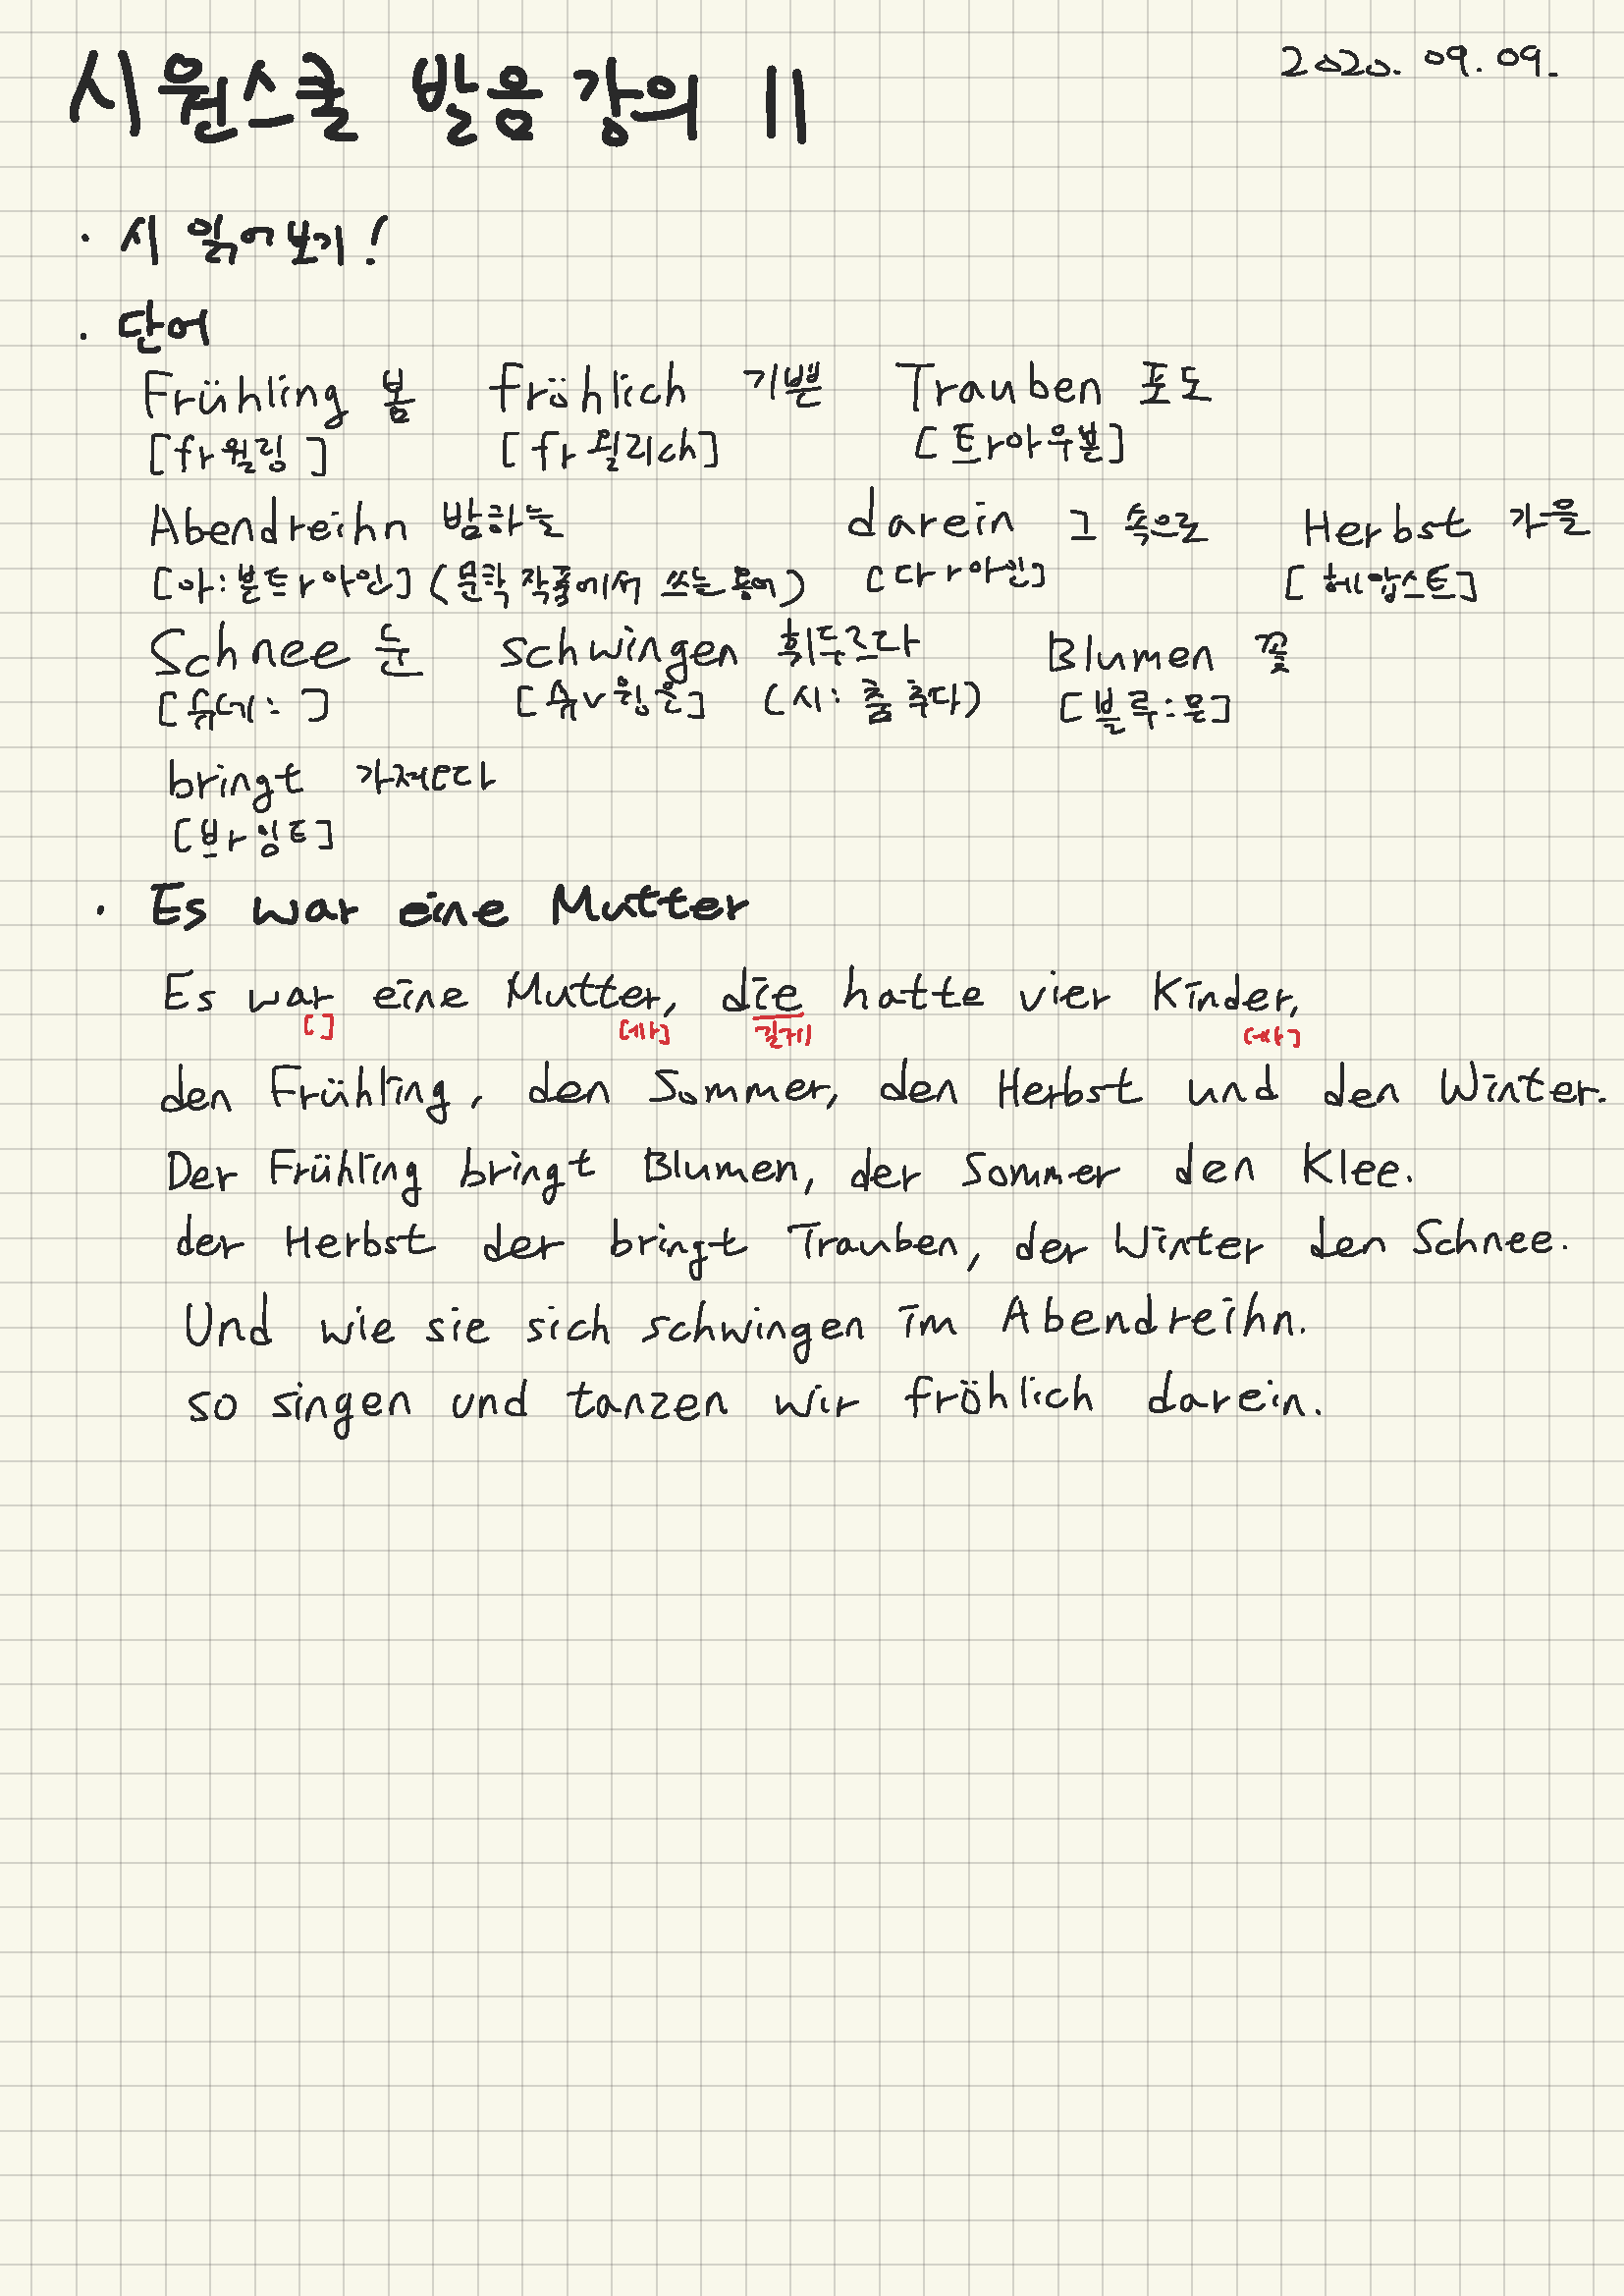 시원스쿨 발음 강의 11
2020. 09. 09.
· 시 읽어보기!
· 단어
Frühling 봄 fröhlich 기쁜 Trauben 포도
[fr월링] [fr뢸리ch] [트r아우븐]
Abendreihn 밤하늘 darein 그 속으로 Herbst 가을
[아:븐트r아인] (문학 작품에서 쓰는 용어) [다r아인] [헤압스트]
Schnee 눈 schwingen 휘두르다 Blumen 꽃
[슈네:] [슈v윙은] (시: 춤 추다) [블루:믄]
bringt 가져온다
[브r잉트]
· Es war eine Mutter
Es war eine Mutter, die hatte vier Kinder,
[] 길게
den Frühling, den Sommer, den Herbst und den Winter.
Der Frühling bringt Blumen, der Sommer den Klee.
der Herbst der bringt Trauben, der Winter den Schnee.
Und wie sie sich schwingen im Abendreihn.
so singen und tanzen wir fröhlich darein.